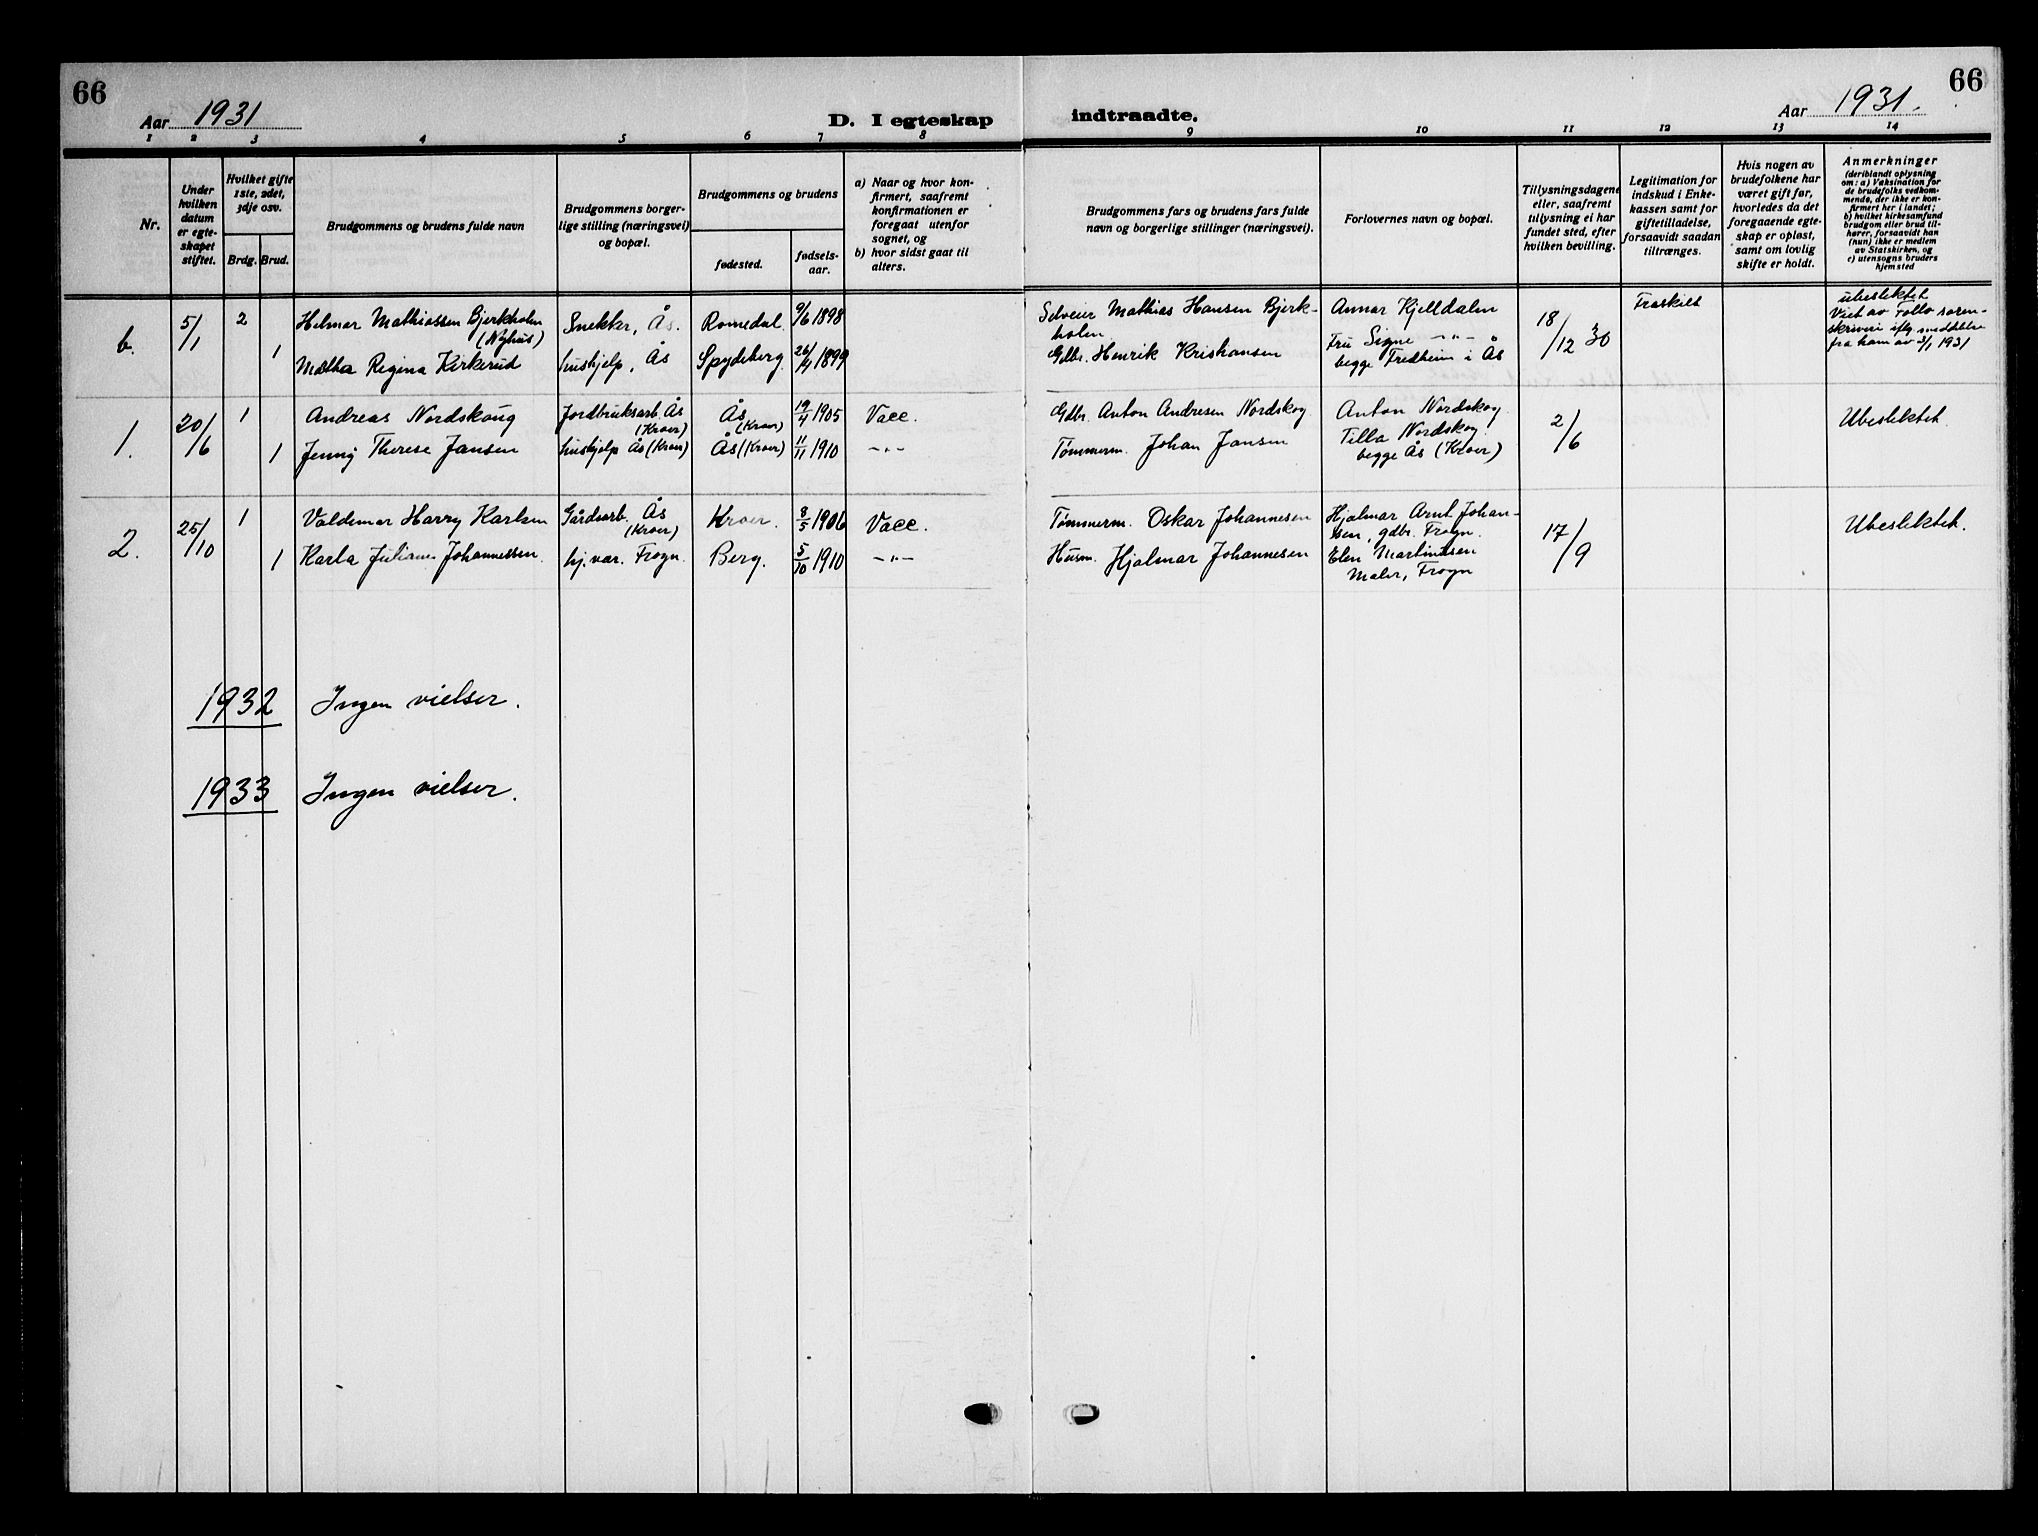 66
Aar 1931
D. I egteskap
indtraadte.
Aar 1931.
66
1 2 3 4 5 6 7 8 9 10 11 12 13 14
Nr.
Under
hvilken
datum
er egte-
skapet
stiftet.
Hvilket gifte
1ste, 2det,
3dje osv.
Brdg. Brud.
Brudgommens og brudens fulde navn
Brudgommens borger-
lige stilling (næringsvei)
og bopæl.
Brudgommens og brudens
fødested.
fødsels-
aar.
a) Naar og hvor kon-
firmert, saafremt
konfirmationen er
foregaat utenfor
sognet, og
b) hvor sidst gaat til
alters.
Brudgommens fars og brudens fars fulde
navn og borgerlige stillinger (næringsvei).
Forlovernes navn og bopæl.
Tillysningsdagene
eller, saafremt
tillysning ei har
fundet sted, efter
hvilken bevilling.
Legitimation for
indskud i Enke-
kassen samt for
giftetilladelse,
forsaavidt saadan
tiltrænges.
Hvis nogen av
brudefolkene har
været gift før,
hvorledes da det
foregaaende egte-
skap er opløst,
samt om lovlig
skifte er holdt.
Anmerkninger
(deriblandt oplysning
om: a) Vaksination for
de brudefolks vedkom-
mende, der ikke er kon-
firmert her i landet;
b) hvilket kirkesamfund
brudgom eller brud til-
hører, forsaavidt han
(hun) ikke er medlem
av Statskirken, og
c) utensogns bruders
hjemsted
b. 5/1 2 Helmer Mathiassen Bjerkholm
(Nyhus)
Snekker, Ås. Romedal 9/6 1898
1 Mætha Regina Kirkerud
hushjelp, Ås Spydeberg. 26/4 1899
Selveier Mathias Hansen Bjerk-
holm
Gdbr. Henrik Kristiansen
Annar Kjelldalen
Fru Signe —"—
begge Fredheim i Ås
18/12 30
Fraskilt
Ubeslektet
Viet av Follo soren-
skriveri iflg. meddelelse
fra ham av 1931
1. 20/6 1 Andreas Nordskoug
Jordbruksarb. Ås
(Kroer)
Ås
(Kroer)
19/4 1905 Vacc.
1 Jenny Therese Jansen
hushjelp Ås (Kroer) Ås (Kroer) 11/11 1910 —"—
Gdbr. Anton Andresen Nordskog
Tømmerm. Johan Jansen
Anton Nordskog
Tilla Nordskog
begge Ås (Kroer)
2/6
Ubeslektet.
2. 25/10 1 Valdemar Harry Karlsen
Gårdsarb. Ås
(Kroer)
Kroer. 8/5 1906 Vacc.
1 Karla Juliane Johannessen.
hj. vær. Frogn. Berg. 5/10 1910 —"—
Tømmerm. Oskar Johannesen
Husm. Hjalmar Johannesen
Hjalmar Arnt Johan-
sen, gdbr. Frogn.
Elen Martinsen
Maler, Frogn
17/9
Ubeslektet.
1932 Ingen vielser.
1933 Ingen vielser.